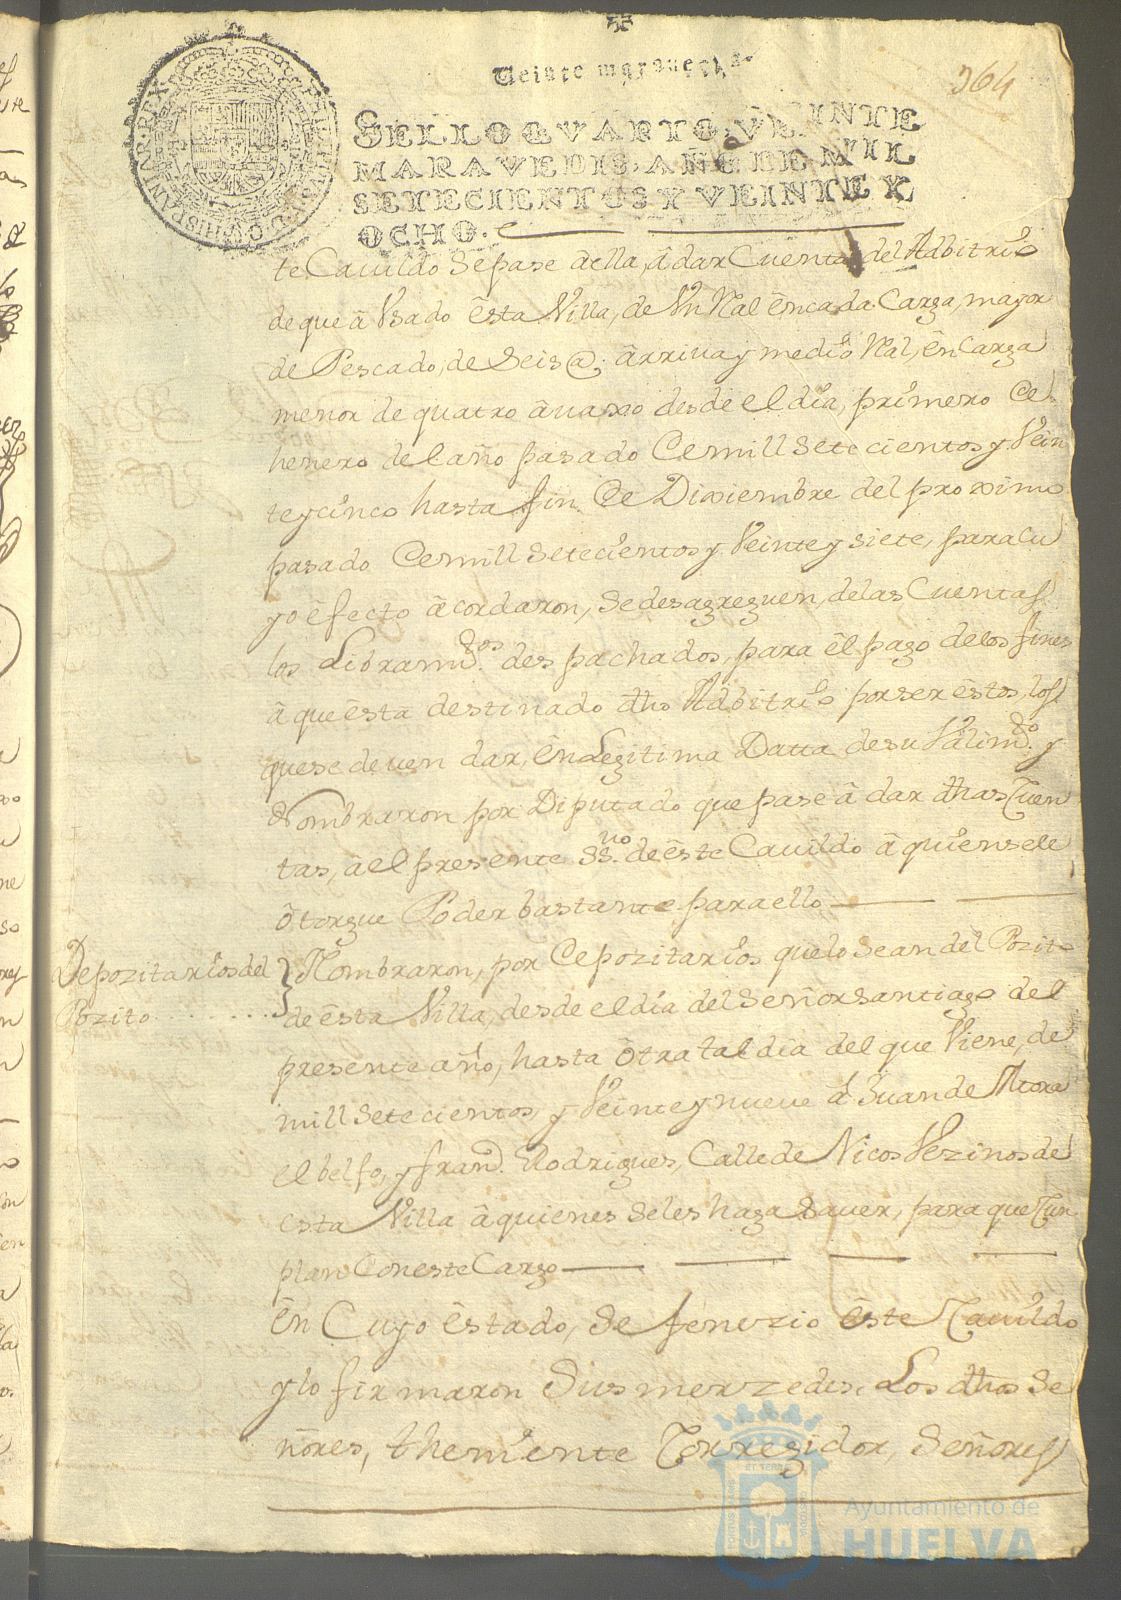 Veinte maravedis
364
SELLO QVARTO, VEINTE
MARAVEDIS, AÑO DE MIL
SETECIENTOS Y VEINTE Y
OCHO.
te Cavildo Sepase âella, â dar Cuenta del Adbitrio
de que â Vsado êsta Villa, de Vn Rral êncada Carga, mayor
de Pescado, de Seis @. ârriva y medio Rral, ên Carga
menor de quatro âvaxo desde el dia, primero de
henero del año pasado Demill Setecientos y Vein
te y cinco hasta fin de Diziembre del proximo
pasado Demill Setecientos y Veinte y siete, para Cu
yo êfecto âcordaron, se desagreguen, de las Cuentas
los Libramtos. despachados, para êl pago de los fines
â que êsta destinado dho Adbitrio por ser êstos, los
que se deven dar, ên Legitima Datta de su Valimto. y
Nombraron por Diputado que pase â dar dhas Cuen
tas, âel presente SSno. de êste Cavildo â quien se le
ôtorgue Poder bastante para ello
Depozitarios del
Pozito
Nombraron, por Depozitarios que lo sean del Pozito
de êsta Villa, desde el dia del Señor Santiago del
presente año, hasta ôtra tal dia del que Viene, de
mill Setecientos, y Veinte y nueve â Juan de Mora
el belfo, y Frand. Rodrigues, Calle de Nicos Vezinos de
esta Villa â quienes se les haga Saver, para que Cun
plan Con este Cargo
Ên Cuyo êstado, Se fenezio êste Cavildo
y lo firmaron Sus merzedes, Los dhos Se
ñores, theniente Corregidor, Señores
Ayuntamiento de
HUELVA